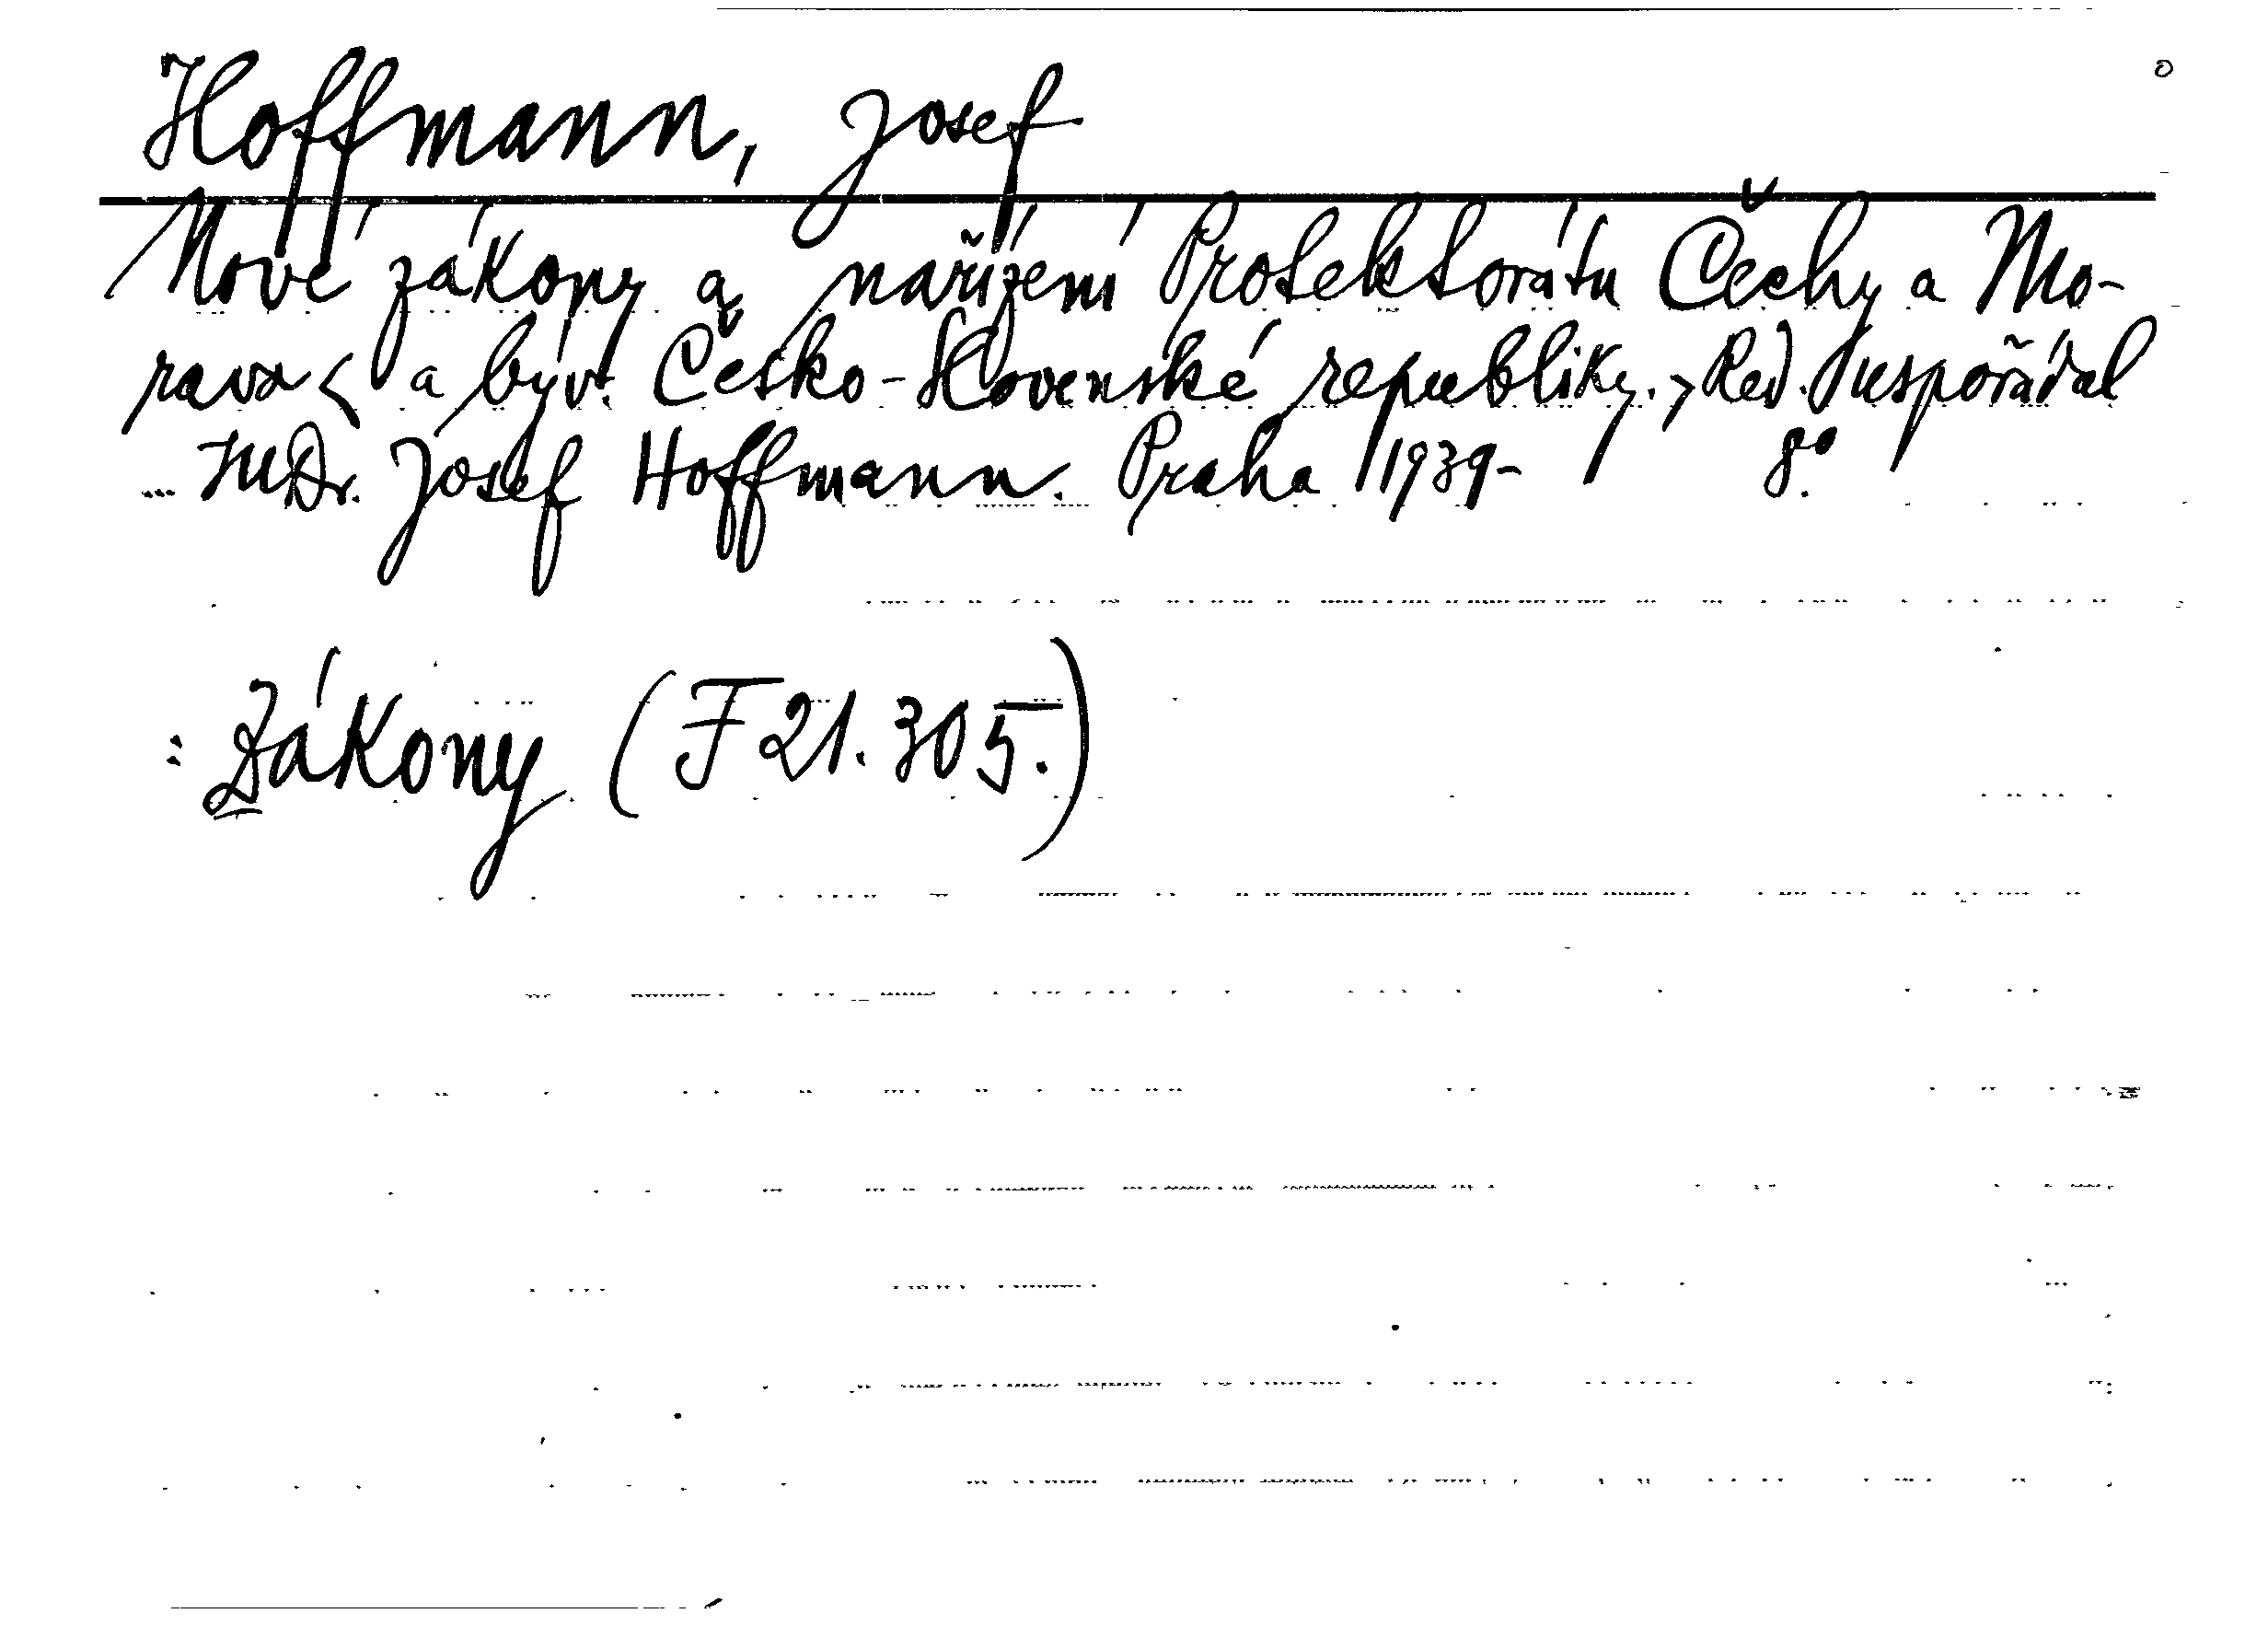 Hoffmann, Josef
Nové zákony a nařízení Protektorátu Čechy a Mo-
rava < a býv. Česko-Slovenské republiky.> Red. uspořádal
JUDr. Josef Hoffmann. Praha 1939- 8°.
: Zákony (F 21.305.)